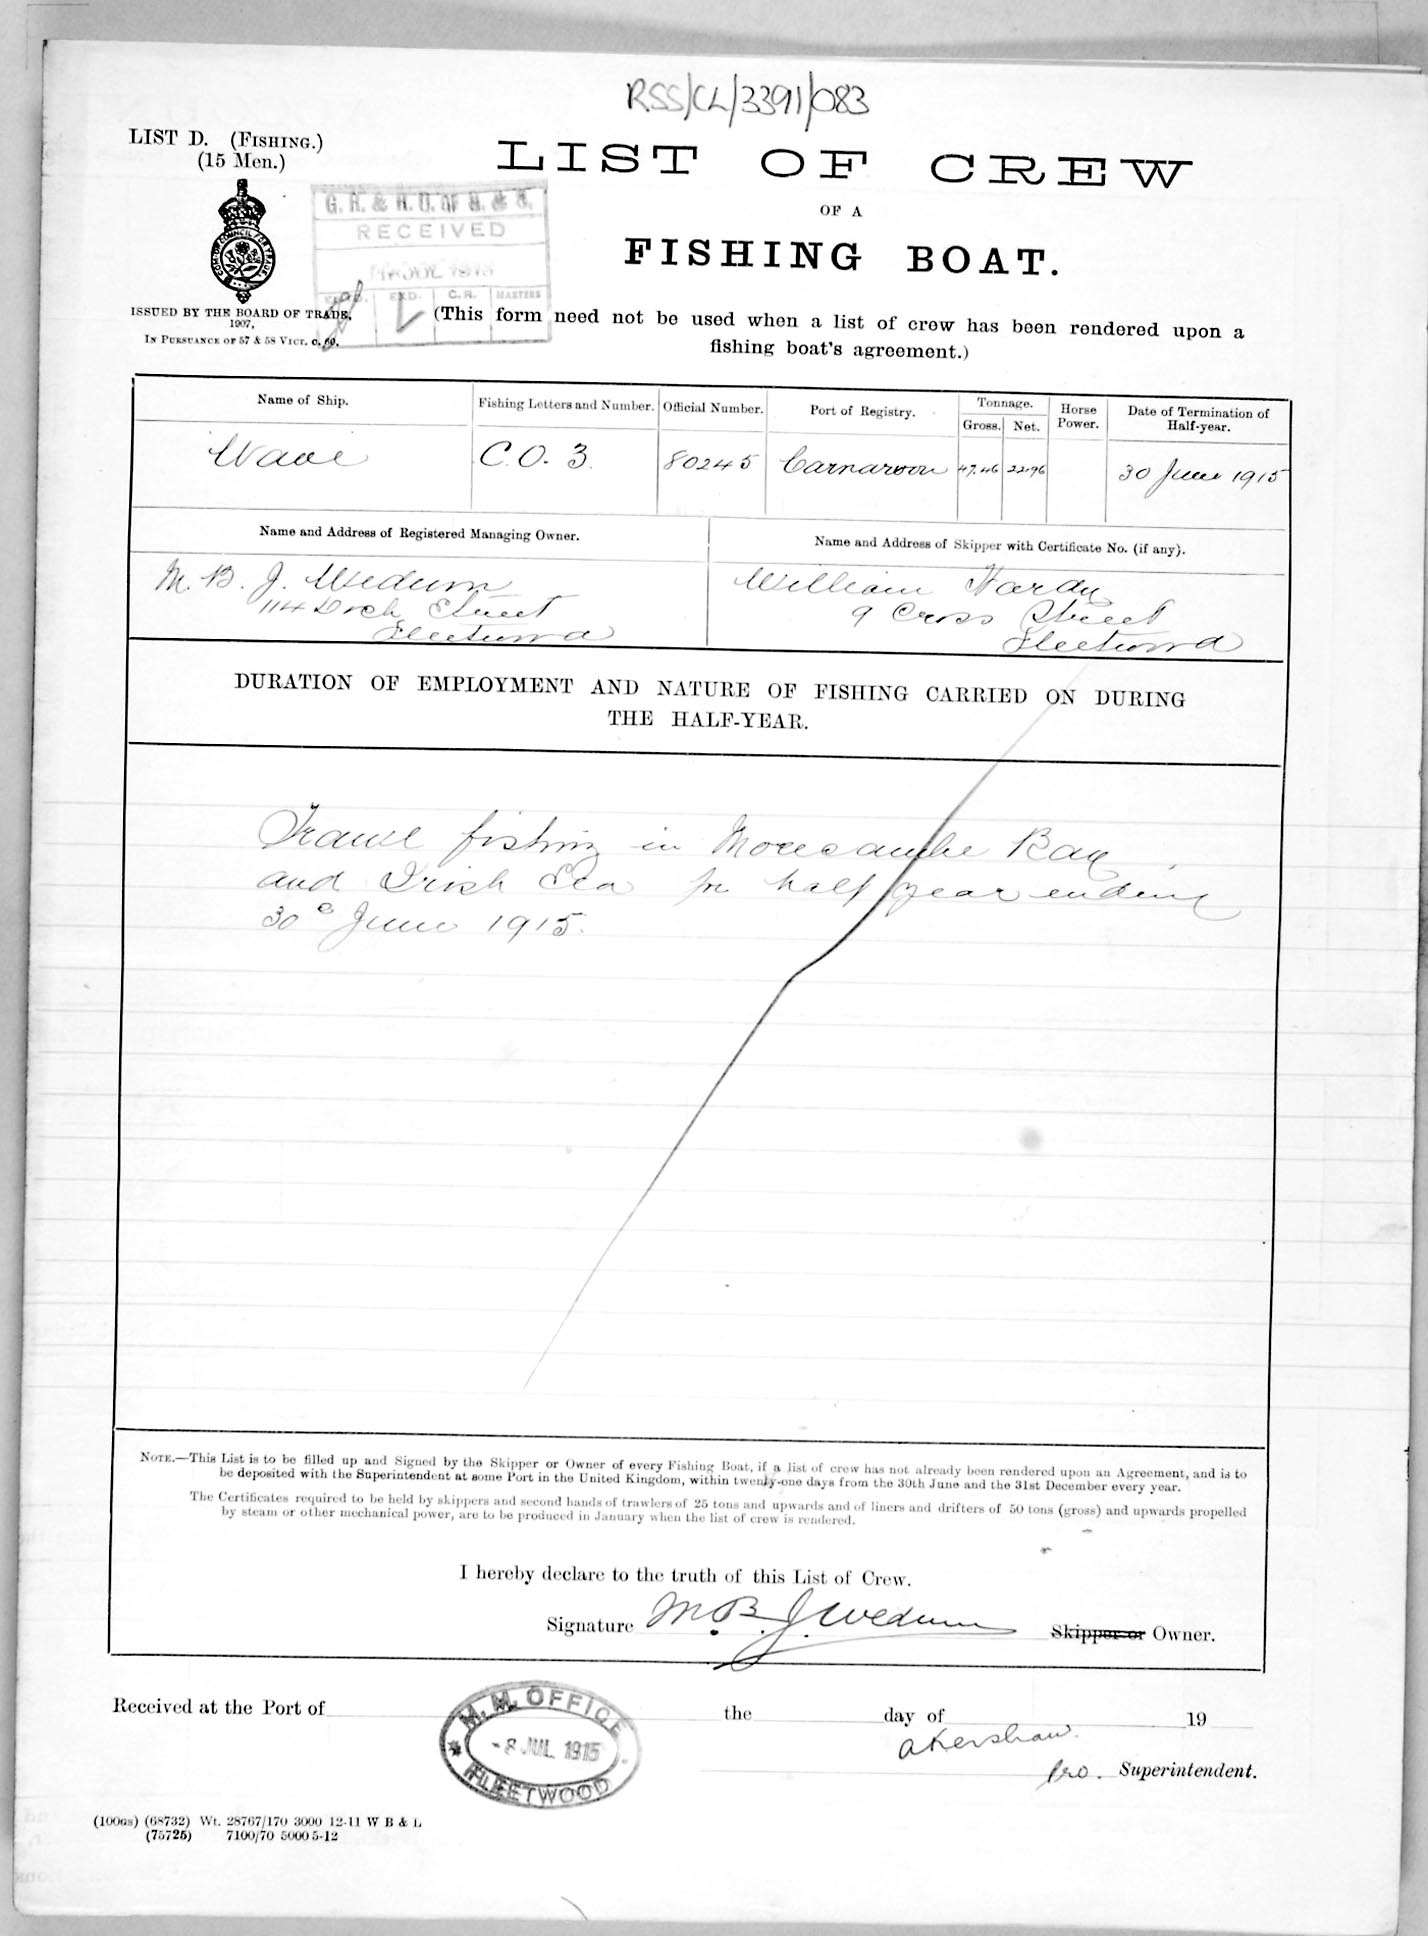 RSS/CL/3391/083
LIST D. (FISHING.)
(15 Men.)
LIST OF CREW
OF A
FISHING BOAT.
G. R. & R. O. OF S. & S.
RECEIVED
JUL 1915
EXD. C.R. MASTERS
ISSUED BY THE BOARD OF TRADE,
1907,
IN PURSUANCE OF 57 & 58 VICT. C. 60.
(This form need not be used when a list of crew has been rendered upon a
fishing boat's agreement.)
Name of Ship. Fishing Letters and Number. Official Number. Port of Registry. Tonnage. Gross. Net. Horse Power. Date of Termination of Half-year.
Wave C.O. 3. 80245 Carnarvon 47.46 22.96 30 June 1915
Name and Address of Registered Managing Owner. Name and Address of Skipper with Certificate No. (if any).
M. B. J. Wedum William Hardy
114 Dock Street 9 Cross Street
Fleetwood Fleetwood
DURATION OF EMPLOYMENT AND NATURE OF FISHING CARRIED ON DURING
THE HALF-YEAR.
Trawl fishing in Morecambe Bay
and Irish Sea for half year ending
30e June 1915.
NOTE.—This List is to be filled up and Signed by the Skipper or Owner of every Fishing Boat, if a list of crew has not already been rendered upon an Agreement, and is to
be deposited with the Superintendent at some Port in the United Kingdom, within twenty-one days from the 30th June and the 31st December every year.
The Certificates required to be held by skippers and second hands of trawlers of 25 tons and upwards and of liners and drifters of 50 tons (gross) and upwards propelled
by steam or other mechanical power, are to be produced in January when the list of crew is rendered.
I hereby declare to the truth of this List of Crew.
Signature M. B. J. Wedum Skipper or Owner.
Received at the Port of the day of 19
M. M. OFFICE
- 8 JUL 1915
FLEETWOOD
A Kershaw
pro. Superintendent.
(100GS) (68732) Wt. 28767/170 3000 12-11 W B & L
(75725) 7100/70 5000 5-12